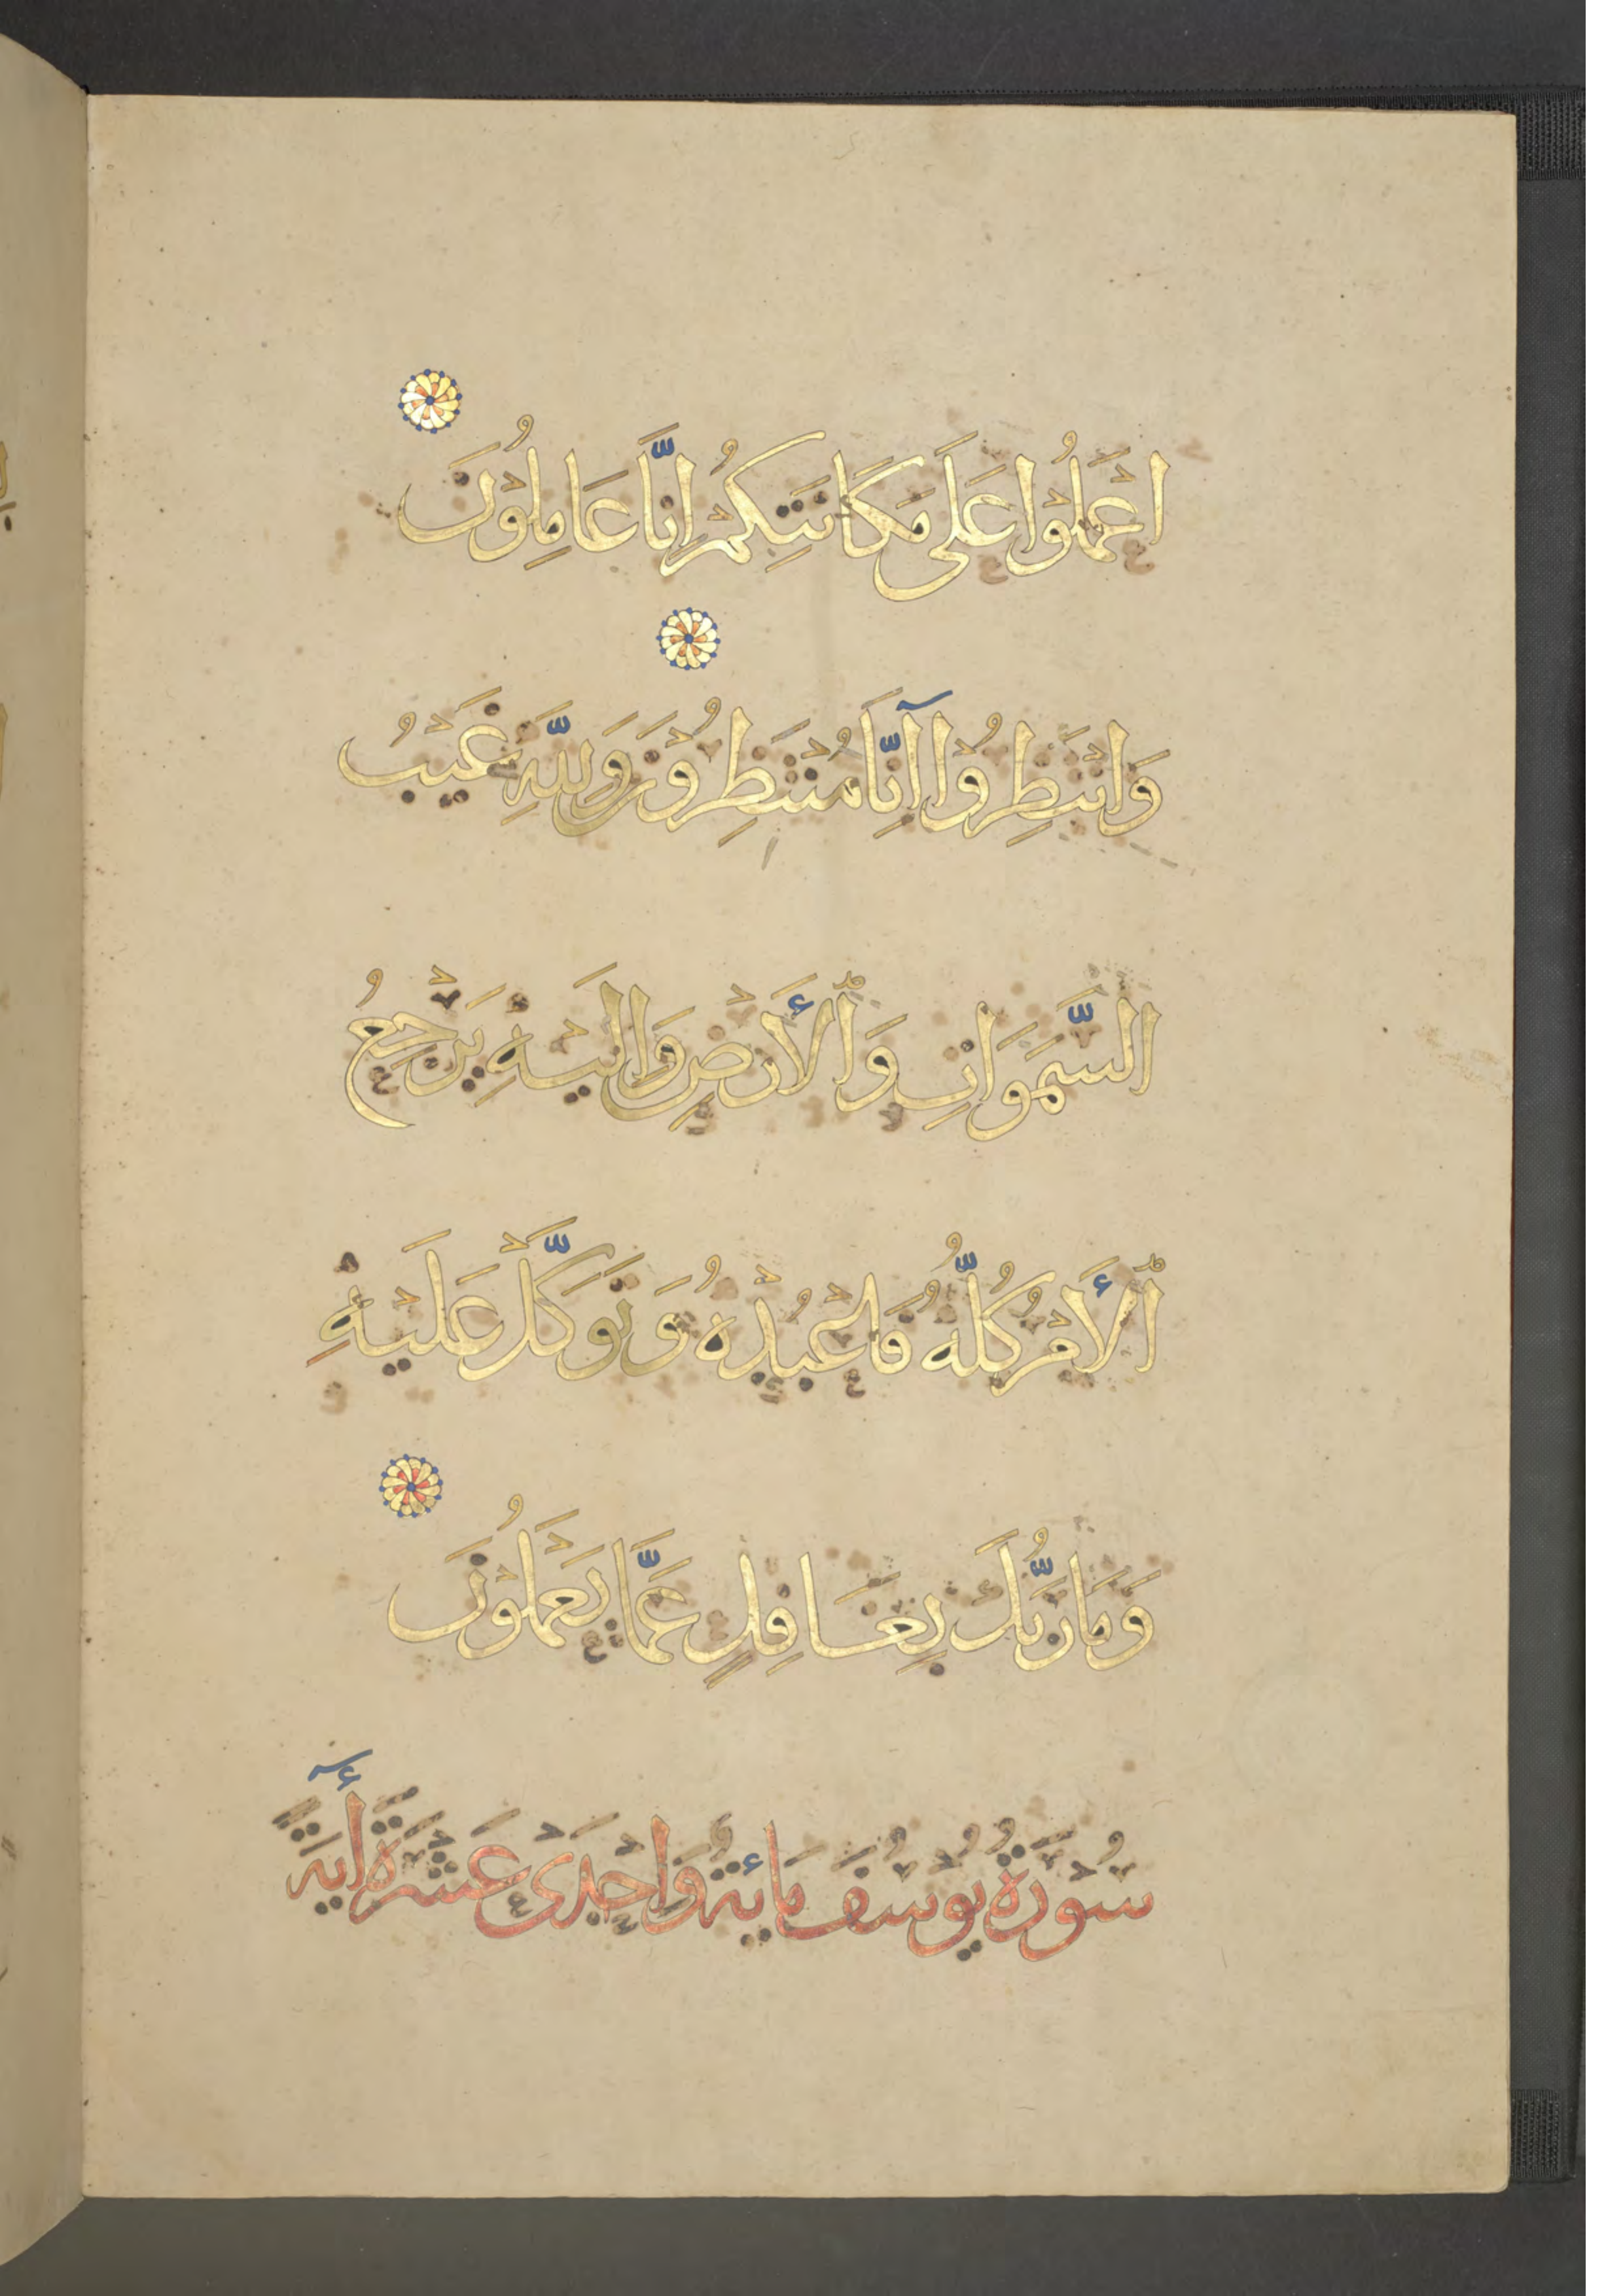 اعْمَلُوْا عَلَى مَكَانَتِكُمْ اِنَّا عَامِلُوْنَ
وَانْتَظِرُوْا اِنَّا مُنْتَظِرُوْنَ وَلِلّٰهِ غَيْبُ
السَّمَوَاتِ وَٱلْأَرْضِ وَاِلَيْهِ يَرْجِعُ
ٱلْأَمْرُ كُلُّهُ فَاعْبُدْهُ وَتَوَكَّلْ عَلَيْهِ
وَمَا رَبُّكَ بِغَافِلٍ عَمَّا يَعْمَلُوْنَ
سُوْرَةُ يُوْسُفَ مَائَةٌ وَاِحْدَىْ عَشْرَةَ أٓيَةً